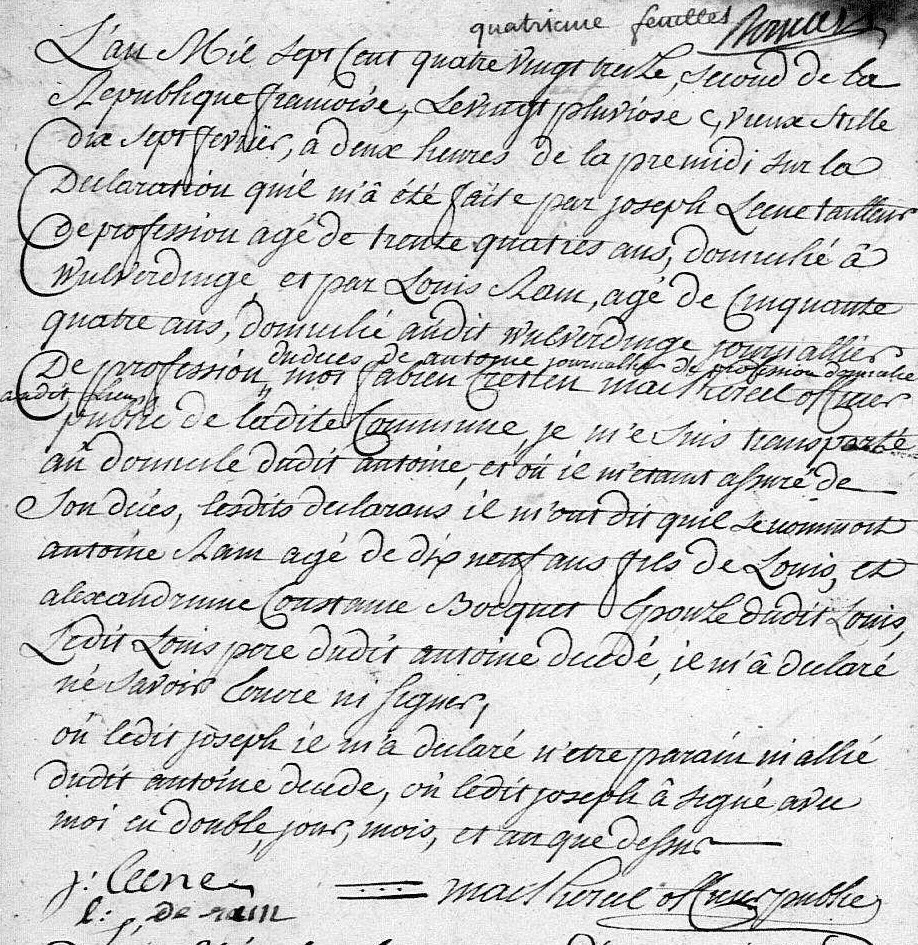 quatrieme feuillet
L'an Mil sept Cent quatre vingt treize, second de la
Republique francoise, Le vingt pluviose c, vieux stille
dix sept fevrier, à deux heures de la premidi sur la
Declaration quil m'â été faite par joseph Leene tailleur
de profession agé de trente quatres ans, domicilié â
wulverdinge, et par Louis Ram, agé de Cinquante
quatre ans, domicilié audit wulverdinge journallier
dudeces de antoine journallier de profession domicilie
De profession, moi fabien Cretien officier
audit lieu,
public de ledite Commune, je m'e suis transporté
aû domicile dudit antoine, et où je m'etant assuré de
son dèces, lesdits declarans il m'ont dit quil se nommoit
antoine Ram agé de dix neuf ans fils de Louis, et
alexandrinne Constance Bocquet Epouze dudit Louis,
Ledit Louis pere dudit antoine decedé, je m'â declaré
né savoir Ecrire ni signer,
oû ledit joseph ie m'a declaré n'etre parain ni allié
dudit antoine decede, oû ledit joseph â signé avec
moi en double, jour, mois, et an que dessus
j: leene
officier public
l: de ram